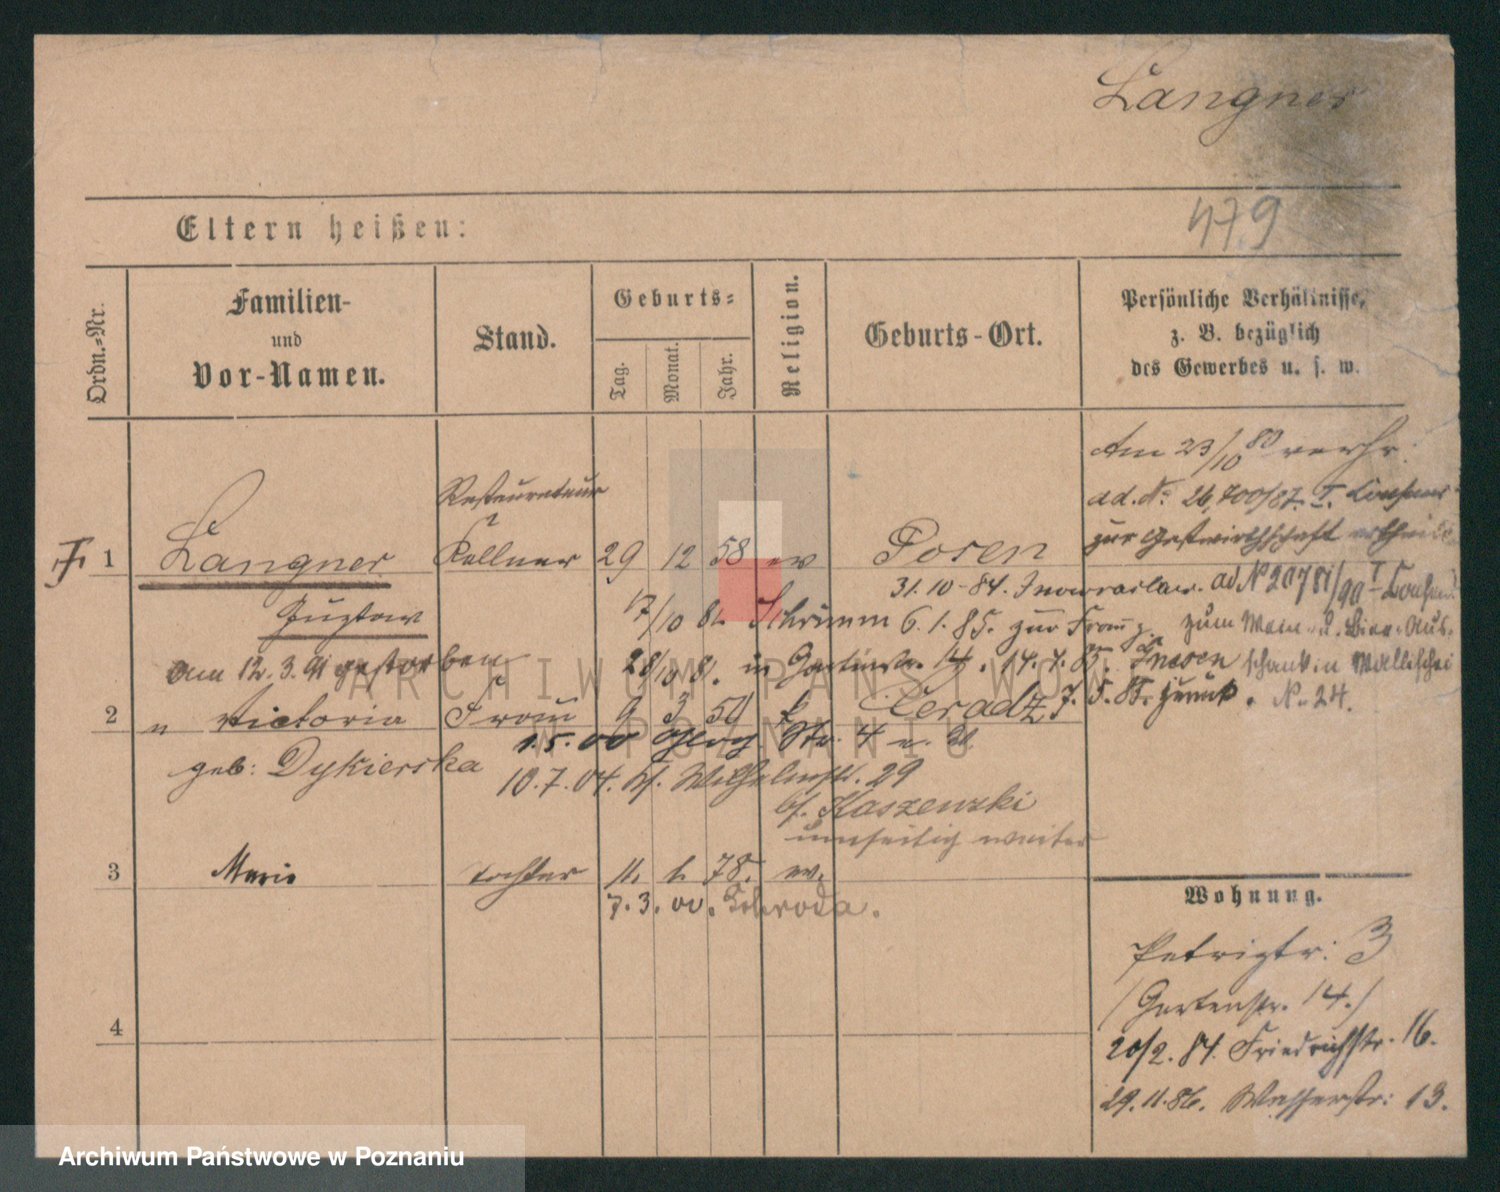 Langner
479
Eltern heißen:
Ordn.-Nr.
Familien-
und
Vor-Namen.
Stand.
Geburts-
Tag.
Monat.
Jahr.
Religion.
Geburts-Ort.
Persönliche Verhältnisse,
z. B. bezüglich
des Gewerbes u. s. w.
Am 23/10 80 verh.
ad. No. 26,700/87. I. Consens
zur Gastwirthschaft
Restaurateur
1 Langner Kellner 29 12 58 ev Posen
31.10-84. Inowrazlaw. ad No 20781/90 I Consens
Gustav 17/10 82 Schrimm 6.1.85. zur Frau zum Wein- u. Bier-Aus-
am 12.3.91 gestorben 28/10 81. in Gartenstr. 14. 14.7. Gnesen schank in Wallischei
2 Victoria Frau 9 3 50 k Peradz 7.5. zurück. No. 24.
geb: Dykierska 1.5.00 Str. 4
10.7.04. Wilhelmstr. 29
bf. Kaszewski
umseitig weiter
3 Marie Tochter 11. 78. ev.
7.3.00. Schroda.
4
Wohnung.
Petristr: 3
(Gartenstr. 14.)
20/2.84. Friedrichstr. 16.
29.11.86. Wasserstr: 13.
ARCHIWUM PAŃSTWOWE
W POZNANIU
Archiwum Państwowe w Poznaniu